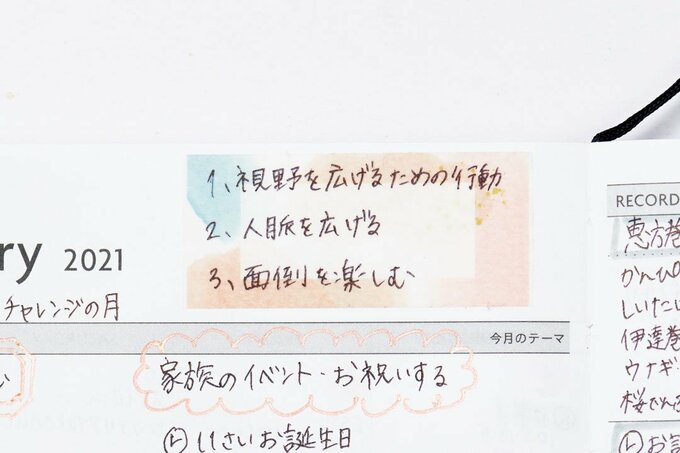 1、視野を広げるための行動
2、人脈を広げる
3、面倒を楽しむ
ry 2021
チャレンジの月
今月のテーマ
家族のイベント・お祝いする
お誕生日
RECORD
恵方巻
かんぴ
しいたけ
伊達巻
ウナギ
桜でんぶ